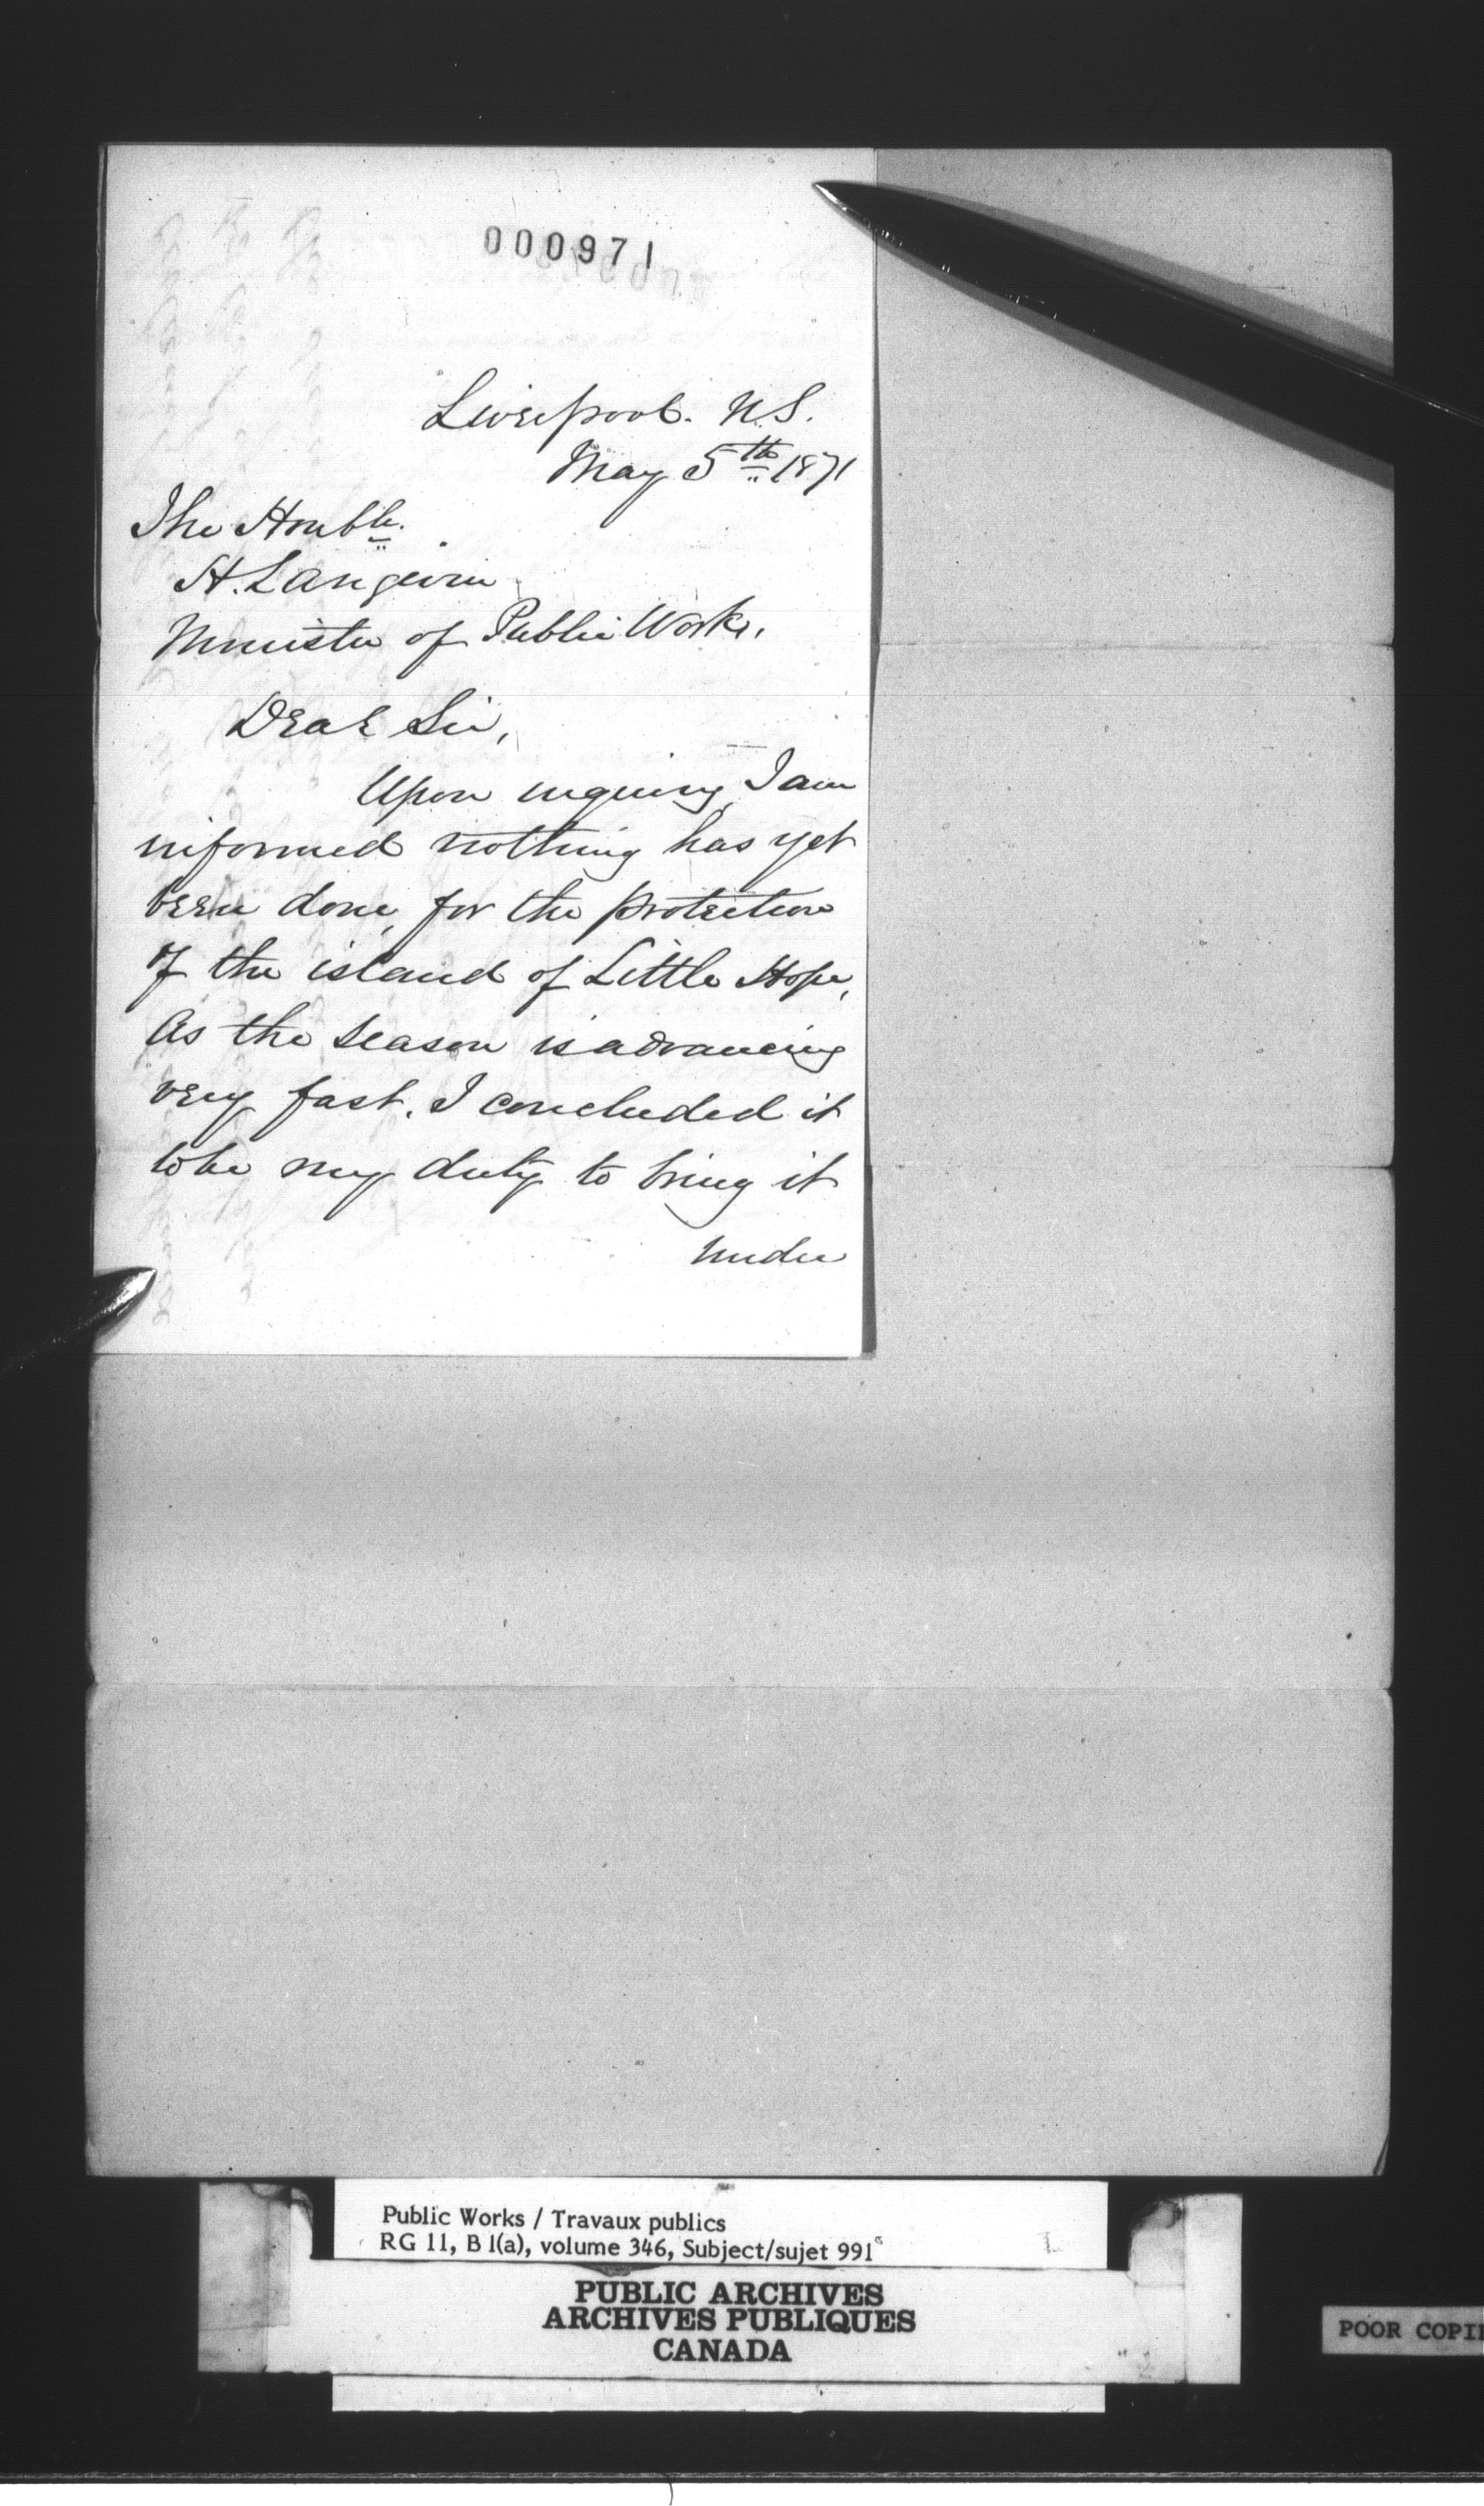 000971
Liverpool. N.S.
May 5th 1871
The Honble.
H. Langevin
Minister of Public Works,
Dear Sir,
Upon inquiry, I am
informed nothing has yet
been done, for the protection
of the island of Little Hope,
As the season is advancing
very fast. I concluded it
to be my duty to bring it
under
Public Works / Travaux publics
RG 11, B 1(a), volume 346, Subject/sujet 991
PUBLIC ARCHIVES
ARCHIVES PUBLIQUES
CANADA
POOR COPI